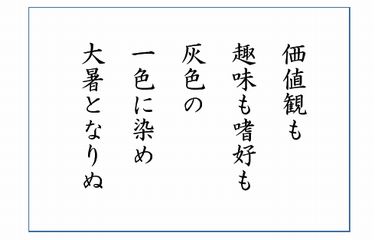 価値観も
趣味も嗜好も
灰色の
一色に染め
大暑となりぬ